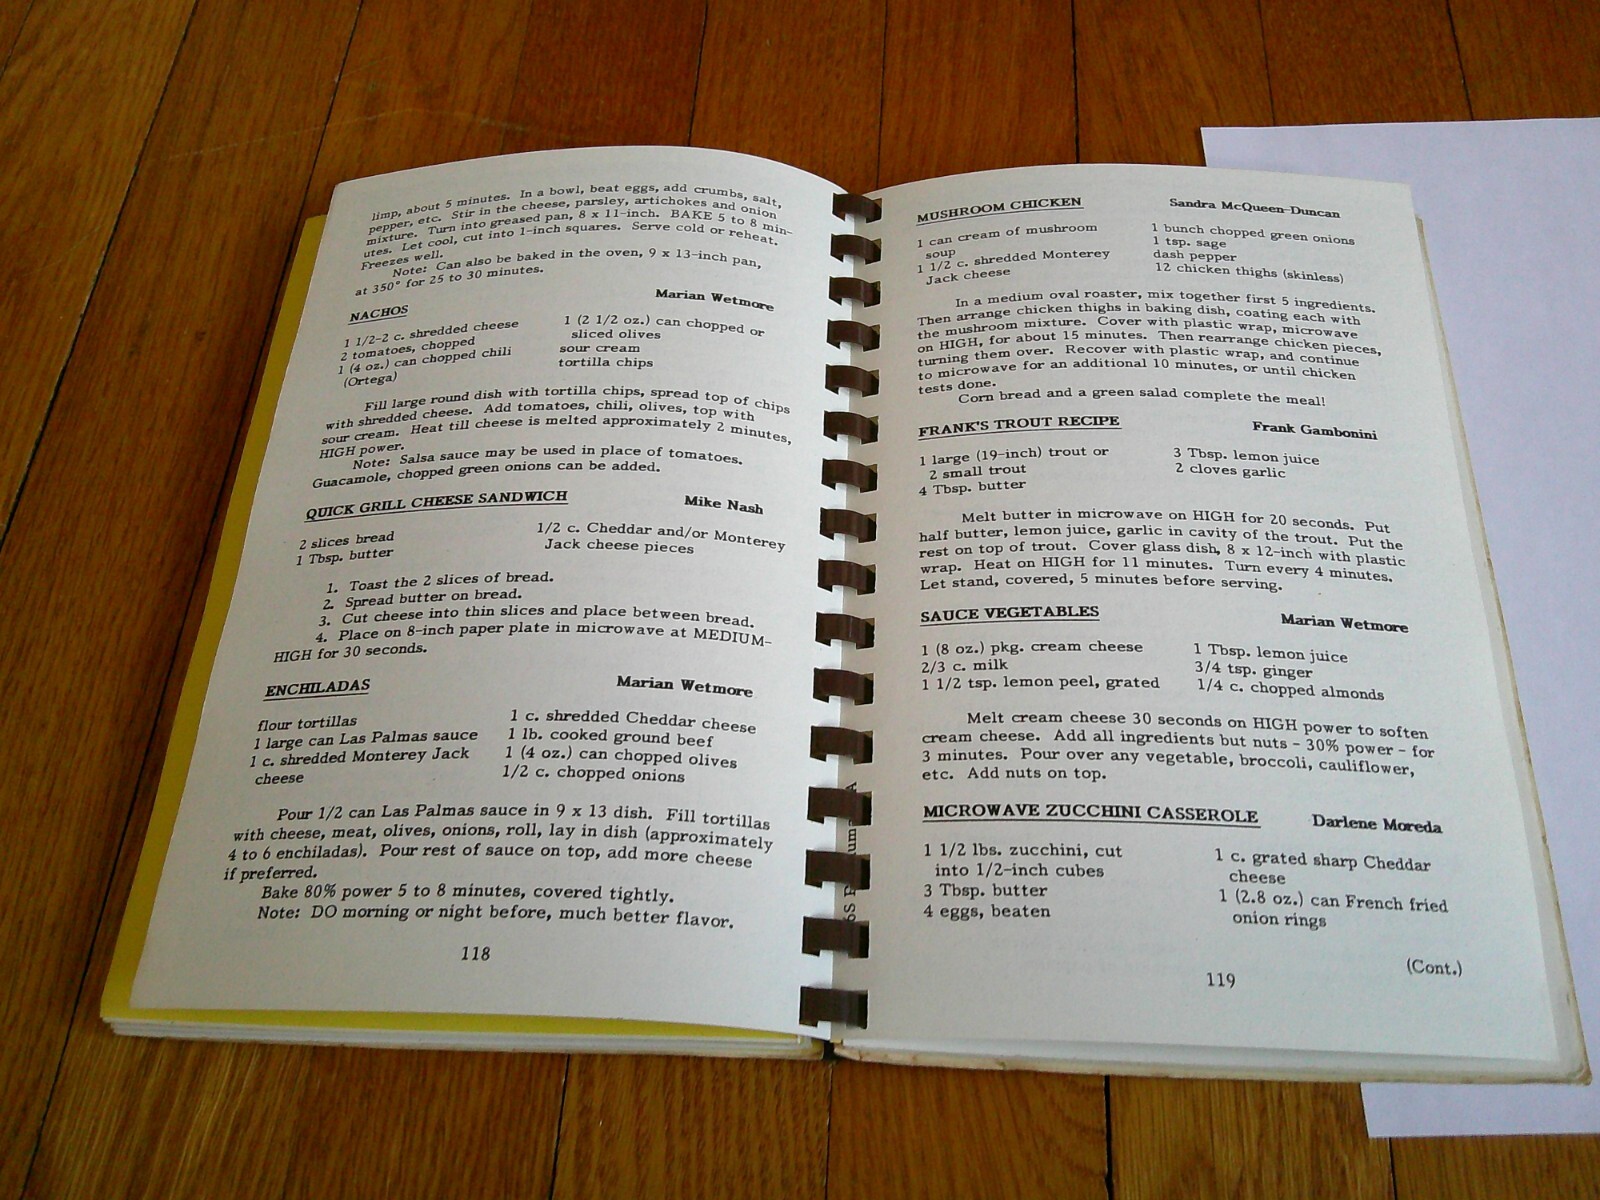 limp, about 5 minutes. In a bowl, beat eggs, add crumbs, salt,
pepper, etc. Stir in the cheese, parsley, artichokes and onion
mixture. Turn into greased pan, 8 x 11-inch. BAKE 5 to 8 min-
utes. Let cool, cut into 1-inch squares. Serve cold or reheat.
Freezes well.
Note: Can also be baked in the oven, 9 x 13-inch pan,
at 350° for 25 to 30 minutes.
NACHOS Marian Wetmore
1 1/2-2 c. shredded cheese
2 tomatoes, chopped
1 (4 oz.) can chopped chili
(Ortega)
1 (2 1/2 oz.) can chopped or
sliced olives
sour cream
tortilla chips
Fill large round dish with tortilla chips, spread top of chips
with shredded cheese. Add tomatoes, chili, olives, top with
sour cream. Heat till cheese is melted approximately 2 minutes,
HIGH power.
Note: Salsa sauce may be used in place of tomatoes.
Guacamole, chopped green onions can be added.
QUICK GRILL CHEESE SANDWICH Mike Nash
2 slices bread
1 Tbsp. butter
1/2 c. Cheddar and/or Monterey
Jack cheese pieces
1. Toast the 2 slices of bread.
2. Spread butter on bread.
3. Cut cheese into thin slices and place between bread.
4. Place on 8-inch paper plate in microwave at MEDIUM-
HIGH for 30 seconds.
ENCHILADAS Marian Wetmore
flour tortillas
1 large can Las Palmas sauce
1 c. shredded Monterey Jack
cheese
1 c. shredded Cheddar cheese
1 lb. cooked ground beef
1 (4 oz.) can chopped olives
1/2 c. chopped onions
Pour 1/2 can Las Palmas sauce in 9 x 13 dish. Fill tortillas
with cheese, meat, olives, onions, roll, lay in dish (approximately
4 to 6 enchiladas). Pour rest of sauce on top, add more cheese
if preferred.
Bake 80% power 5 to 8 minutes, covered tightly.
Note: DO morning or night before, much better flavor.
118
MUSHROOM CHICKEN Sandra McQueen-Duncan
1 can cream of mushroom
soup
1 1/2 c. shredded Monterey
Jack cheese
1 bunch chopped green onions
1 tsp. sage
dash pepper
12 chicken thighs (skinless)
In a medium oval roaster, mix together first 5 ingredients.
Then arrange chicken thighs in baking dish, coating each with
the mushroom mixture. Cover with plastic wrap, microwave
on HIGH, for about 15 minutes. Then rearrange chicken pieces,
turning them over. Recover with plastic wrap, and continue
to microwave for an additional 10 minutes, or until chicken
tests done.
Corn bread and a green salad complete the meal!
FRANK'S TROUT RECIPE Frank Gambonini
1 large (19-inch) trout or
2 small trout
4 Tbsp. butter
3 Tbsp. lemon juice
2 cloves garlic
Melt butter in microwave on HIGH for 20 seconds. Put
half butter, lemon juice, garlic in cavity of the trout. Put the
rest on top of trout. Cover glass dish, 8 x 12-inch with plastic
wrap. Heat on HIGH for 11 minutes. Turn every 4 minutes.
Let stand, covered, 5 minutes before serving.
SAUCE VEGETABLES Marian Wetmore
1 (8 oz.) pkg. cream cheese
2/3 c. milk
1 1/2 tsp. lemon peel, grated
1 Tbsp. lemon juice
3/4 tsp. ginger
1/4 c. chopped almonds
Melt cream cheese 30 seconds on HIGH power to soften
cream cheese. Add all ingredients but nuts - 30% power - for
3 minutes. Pour over any vegetable, broccoli, cauliflower,
etc. Add nuts on top.
MICROWAVE ZUCCHINI CASSEROLE Darlene Moreda
1 1/2 lbs. zucchini, cut
into 1/2-inch cubes
3 Tbsp. butter
4 eggs, beaten
1 c. grated sharp Cheddar
cheese
1 (2.8 oz.) can French fried
onion rings
(Cont.)
119